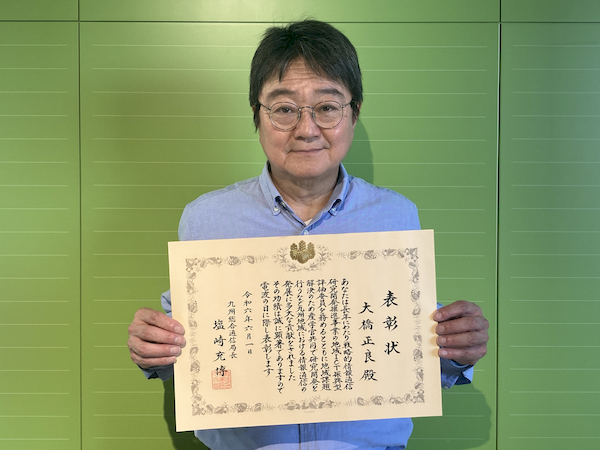 表彰状
大橋正良殿
あなたは長年にわたり戦略的情報通信
研究開発推進事業の地域ＩＣＴ振興型
評価委員を務めるとともに地域課題
解決のため産学官共同で研究開発を
行うなど九州地域における情報通信の
発展に多大な貢献をされました
その功績は誠に顕著でありますので
電波の日に際し表彰します
令和六年六月一日
九州総合通信局長
塩崎充博